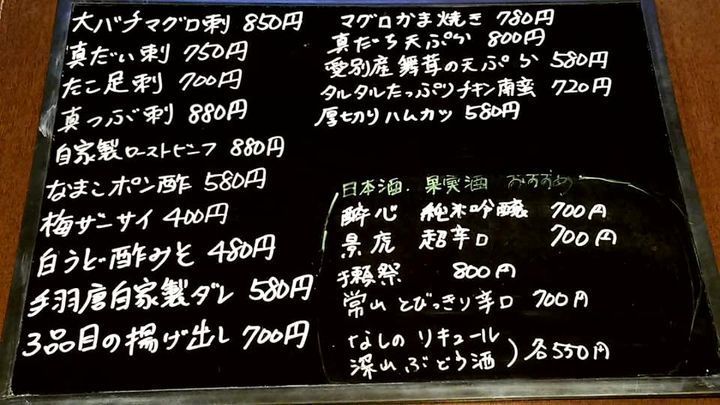 大バチマグロ刺 850円
真だい刺 750円
たこ足刺 700円
真つぶ刺 880円
自家製ローストビーフ 880円
なまこポン酢 580円
梅ザーサイ 400円
白うど酢みそ 480円
手羽唐自家製ダレ 580円
3品目の揚げ出し 700円
マグロかま焼き 780円
真だち天ぷら 800円
愛別産舞茸の天ぷら 580円
タルタルたっぷりチキン南蛮 720円
厚切りハムカツ 580円
日本酒、果実酒 おすすめ
酔心 純米吟醸 700円
景虎 超辛口 700円
獺祭 800円
常山 とびっきり辛口 700円
なしの リキュール
深山ぶどう酒 ) 各550円